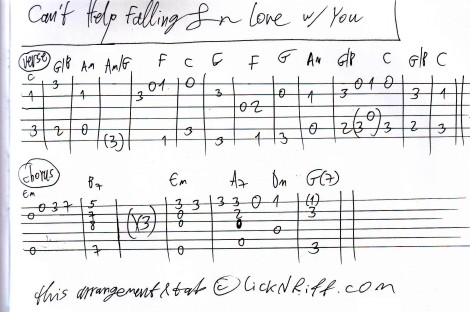 Can't Help Falling In Love w/ You
verse G/B Am Am/G F C G F G Am G/B C G/B C
C 3 0 1 0 3 0 1 0
1 1 3 3 0 1 3 3 1
0 2
3 2 0 1 3 3 1 3 0 2 (3) 3 2 3
(3)
chorus
Em B7 Em A7 Dm G(7)
0 3 7 5 3 3 3 3 0 1 (1)
0 7 (x3) 0 2 3
8 0
0
0 7 0 0 3
this arrangement & tab © LickNRiff.com